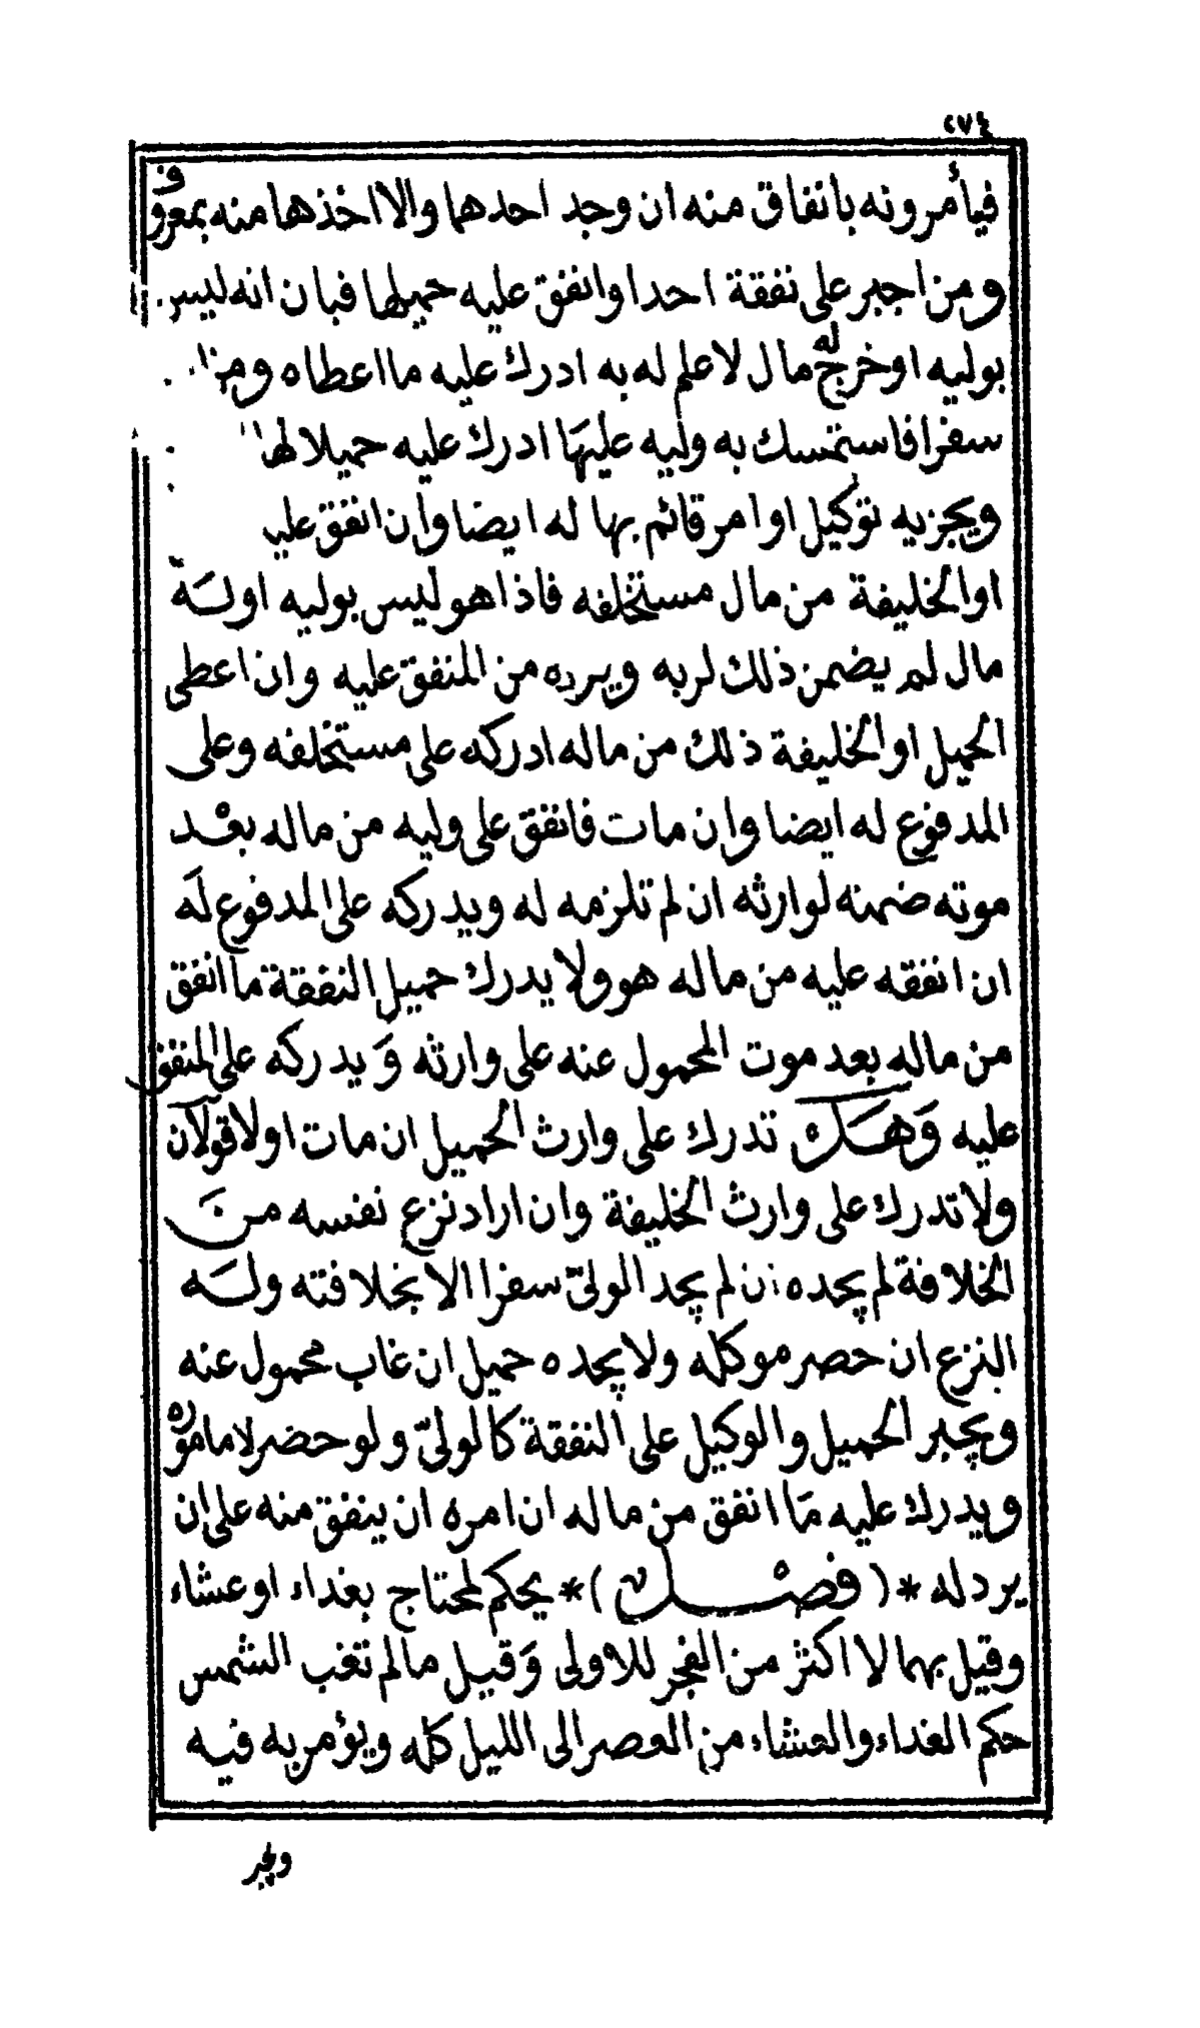 ٢٧٤
فيأمرونه بانفاق منه ان وجد احدهما والا اخذها منه بمعروف
ومن اجبر على نفقة احد اوانفق عليه حميلها فبان انه ليس
بوليه اوخرج له مال لاعلم له به ادرك عليه مااعطاه ومن
سفرا فاستمسك به وليه عليها ادرك عليه حميلا لها
ويجزيه توكيل اوامر قائم بها له ايضا وان انفق
اوالخليفة من مال مستخلفه فاذا هو ليس بوليه اوله
مال لم يضمن ذلك لربه ويرده من المنفق عليه وان اعطى
الحميل اوالخليفة ذلك من ماله ادركه على مستخلفه وعلى
المدفوع له ايضا وان مات فانفق على وليه من ماله بعد
موته ضمنه لوارثه ان لم تلزمه له ويدركه على المدفوع له
ان انفقه عليه من ماله هو ولا يدرك حميل النفقة ماانفق
من ماله بعد موت المحمول عنه على وارثه ويدركه على المنفق
عليه وهل تدرك على وارث الحميل ان مات اولا قولان
ولا تدرك على وارث الخليفة وان اراد نزع نفسه من
الخلافة لم يجده ان لم يجد الولى سفرا الا بخلافته وله
النزع ان حصر موكله ولا يجده حميل ان غاب محمول عنه
ويجبر الحميل والوكيل على النفقة كالولى ولو حضر لا ماموره
ويدرك عليه ما انفق من ماله ان امره ان ينفق منه على ان
يرد له *( فصل )* يحكم لمحتاج بغداء اوعشاء
وقيل بهما لا اكثر من الفجر للاولى وقيل مالم تغب الشمس
حكم الغداء والعشاء من العصر الى الليل كله ويؤمر به فيه